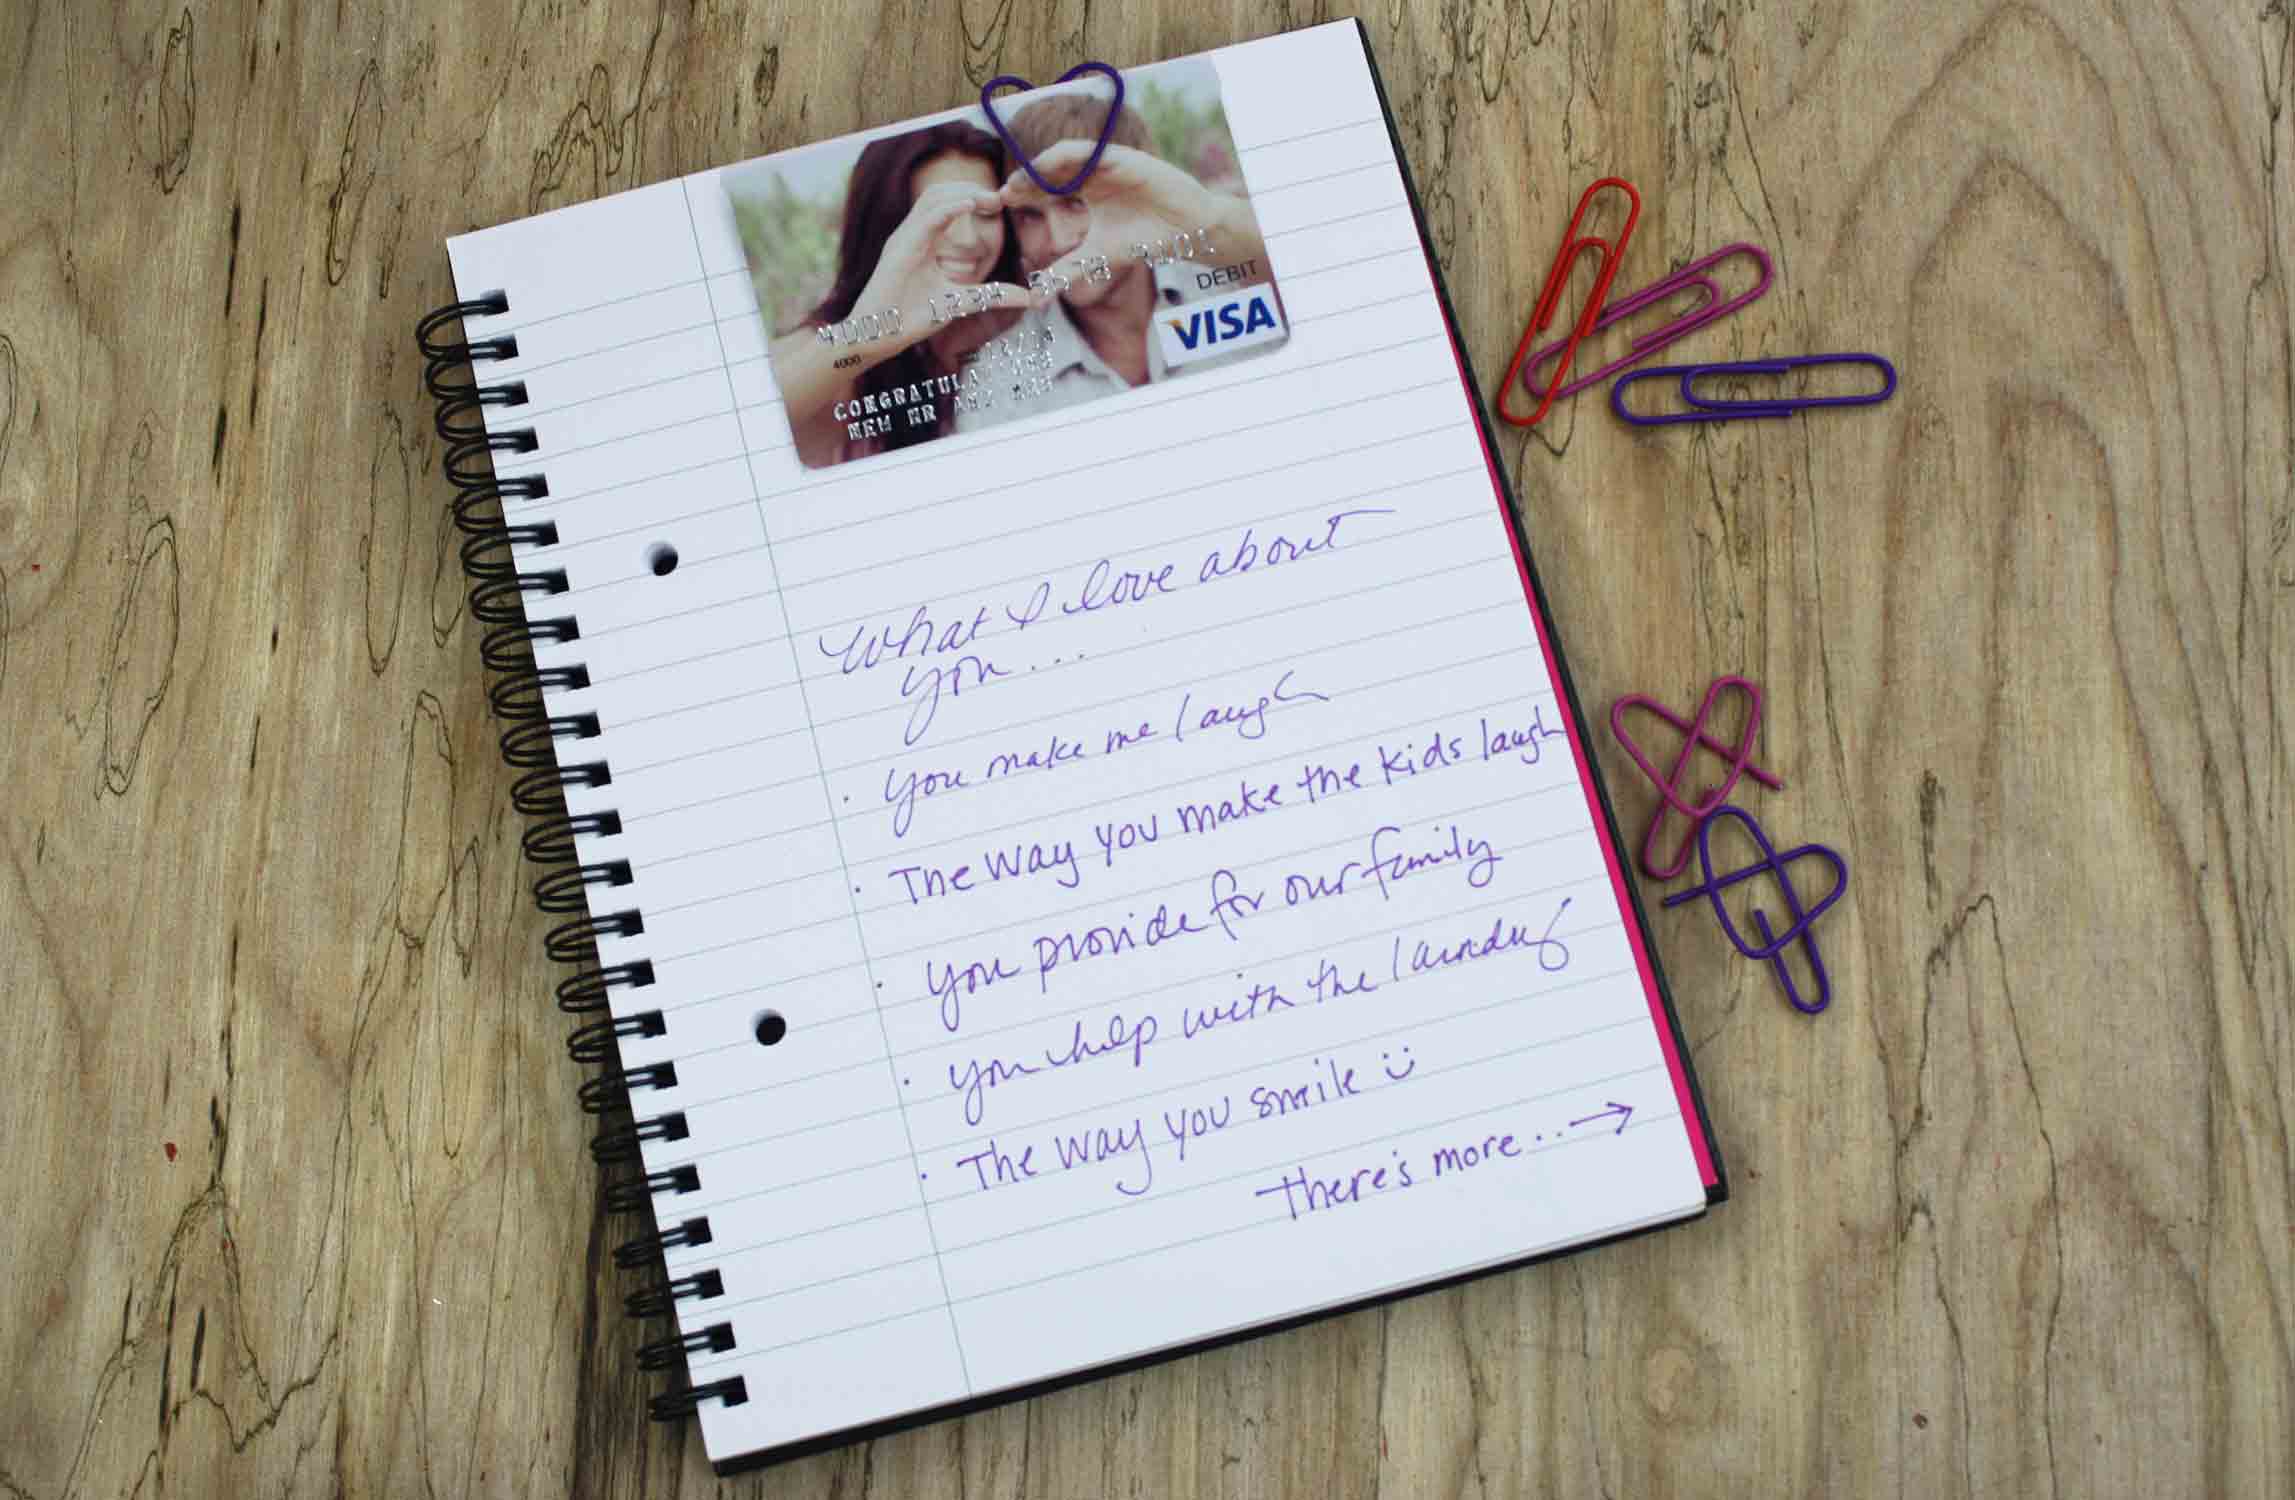 4000 1234 5678 9101
DEBIT
4000
12/14
VISA
CONGRATULATIONS
NEW MR AND MRS
What I love about
you...
· you make me laugh
· The way you make the kids laugh
· you provide for our family
· you help with the laundry
· The way you smile :)
There's more...→